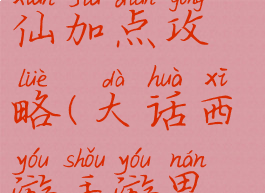 xiān jiā diǎn gōng
仙加点攻
lüè dà huà xī
略(大话西
yóu shǒu yóu nán
游手游男